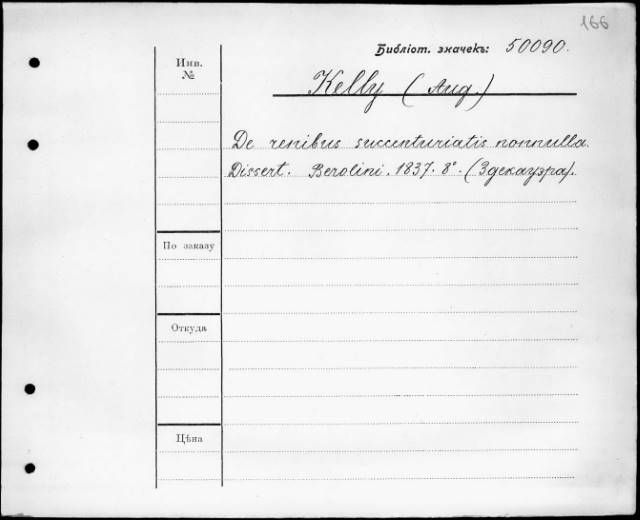 166
Библіот. значекъ: 50090.
Инв.
№
Kelly (Aug.)
De renibus succenturiatis nonnulla.
Dissert. Berolini. 1837. 8°. (Здекауэра).
По заказу
Откуда
Цѣна